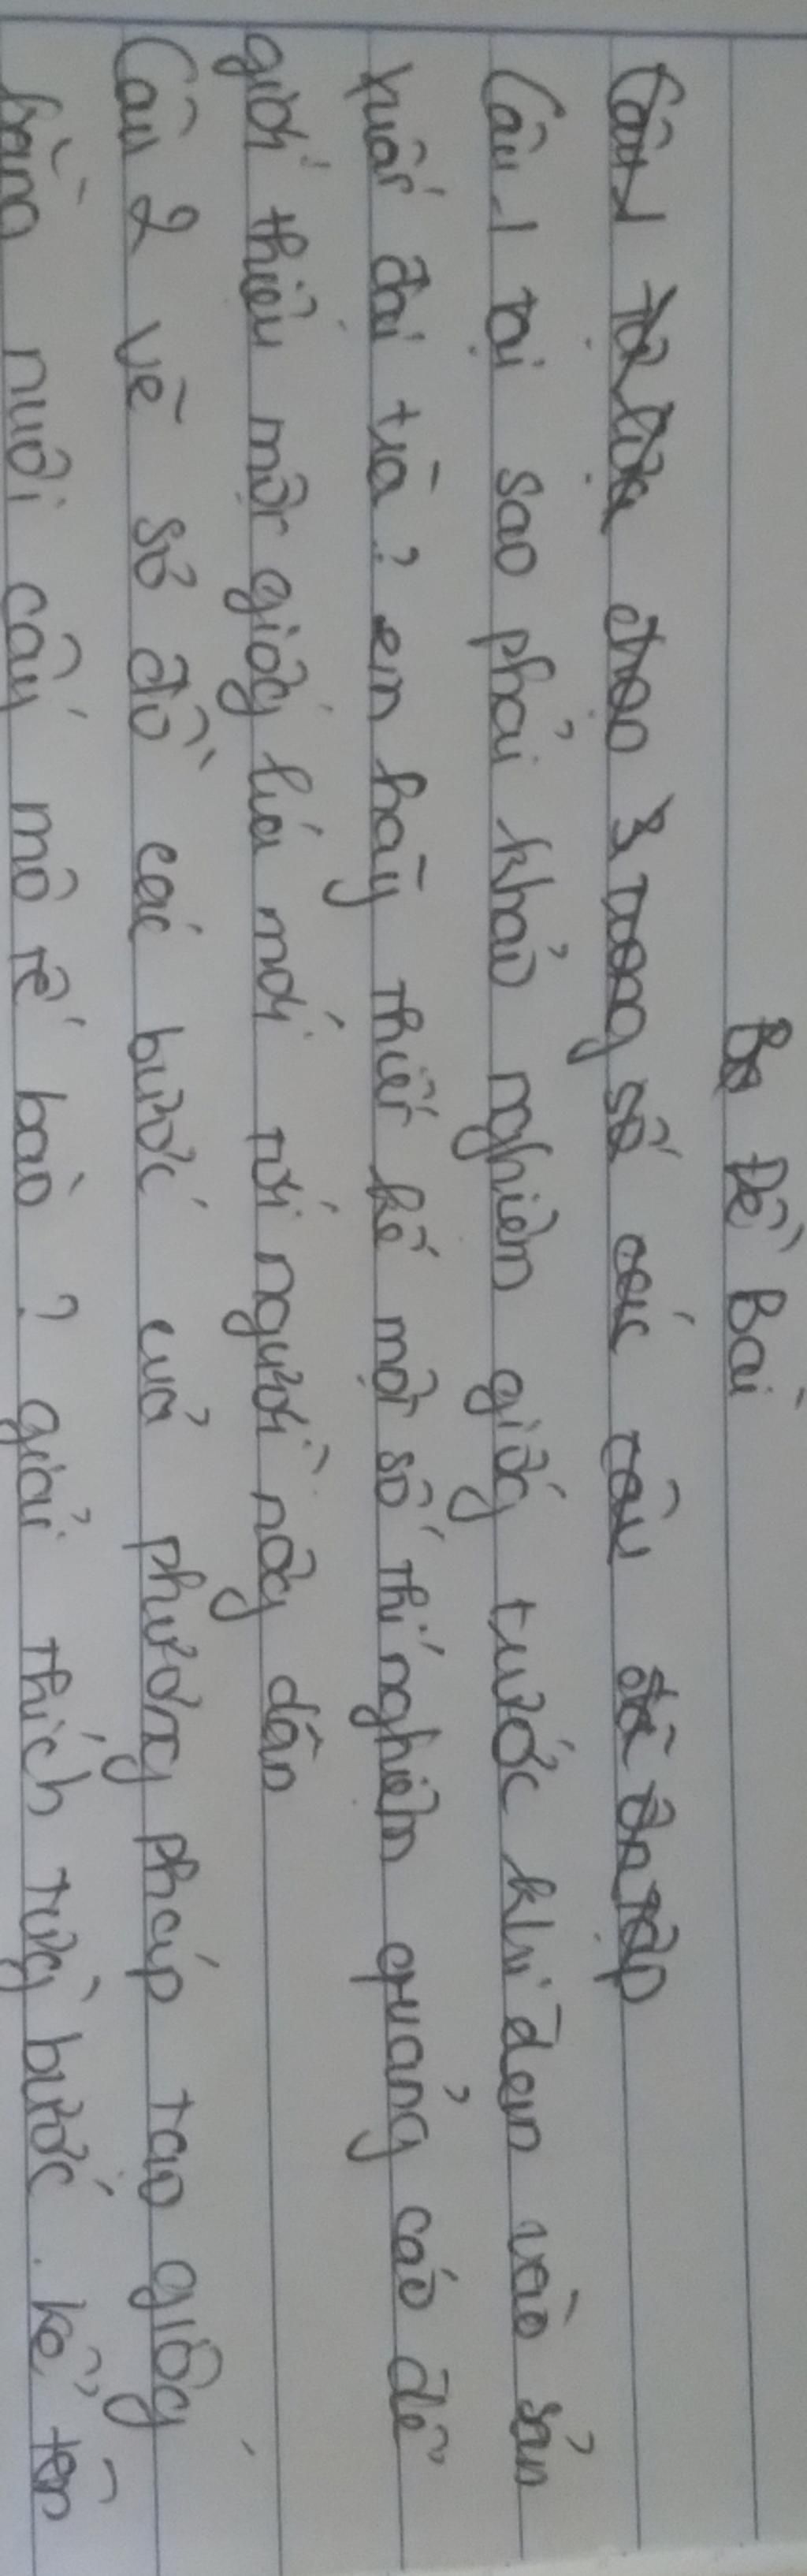 Đề Bài
Câu 1 tự lựa chọn 3 trong số các câu đã ôn tập
Câu 1 tại sao phải khảo nghiệm giống trước khi đem vào sản
xuất đại trà? em hãy thiết kế một số thí nghiệm quảng cáo để
giới thiệu một giống lúa mới tới người nông dân
Câu 2 vẽ sơ đồ các bước của phương pháp tạo giống
bằng nuôi cấy mô tế bào? giải thích từng bước. kể tên